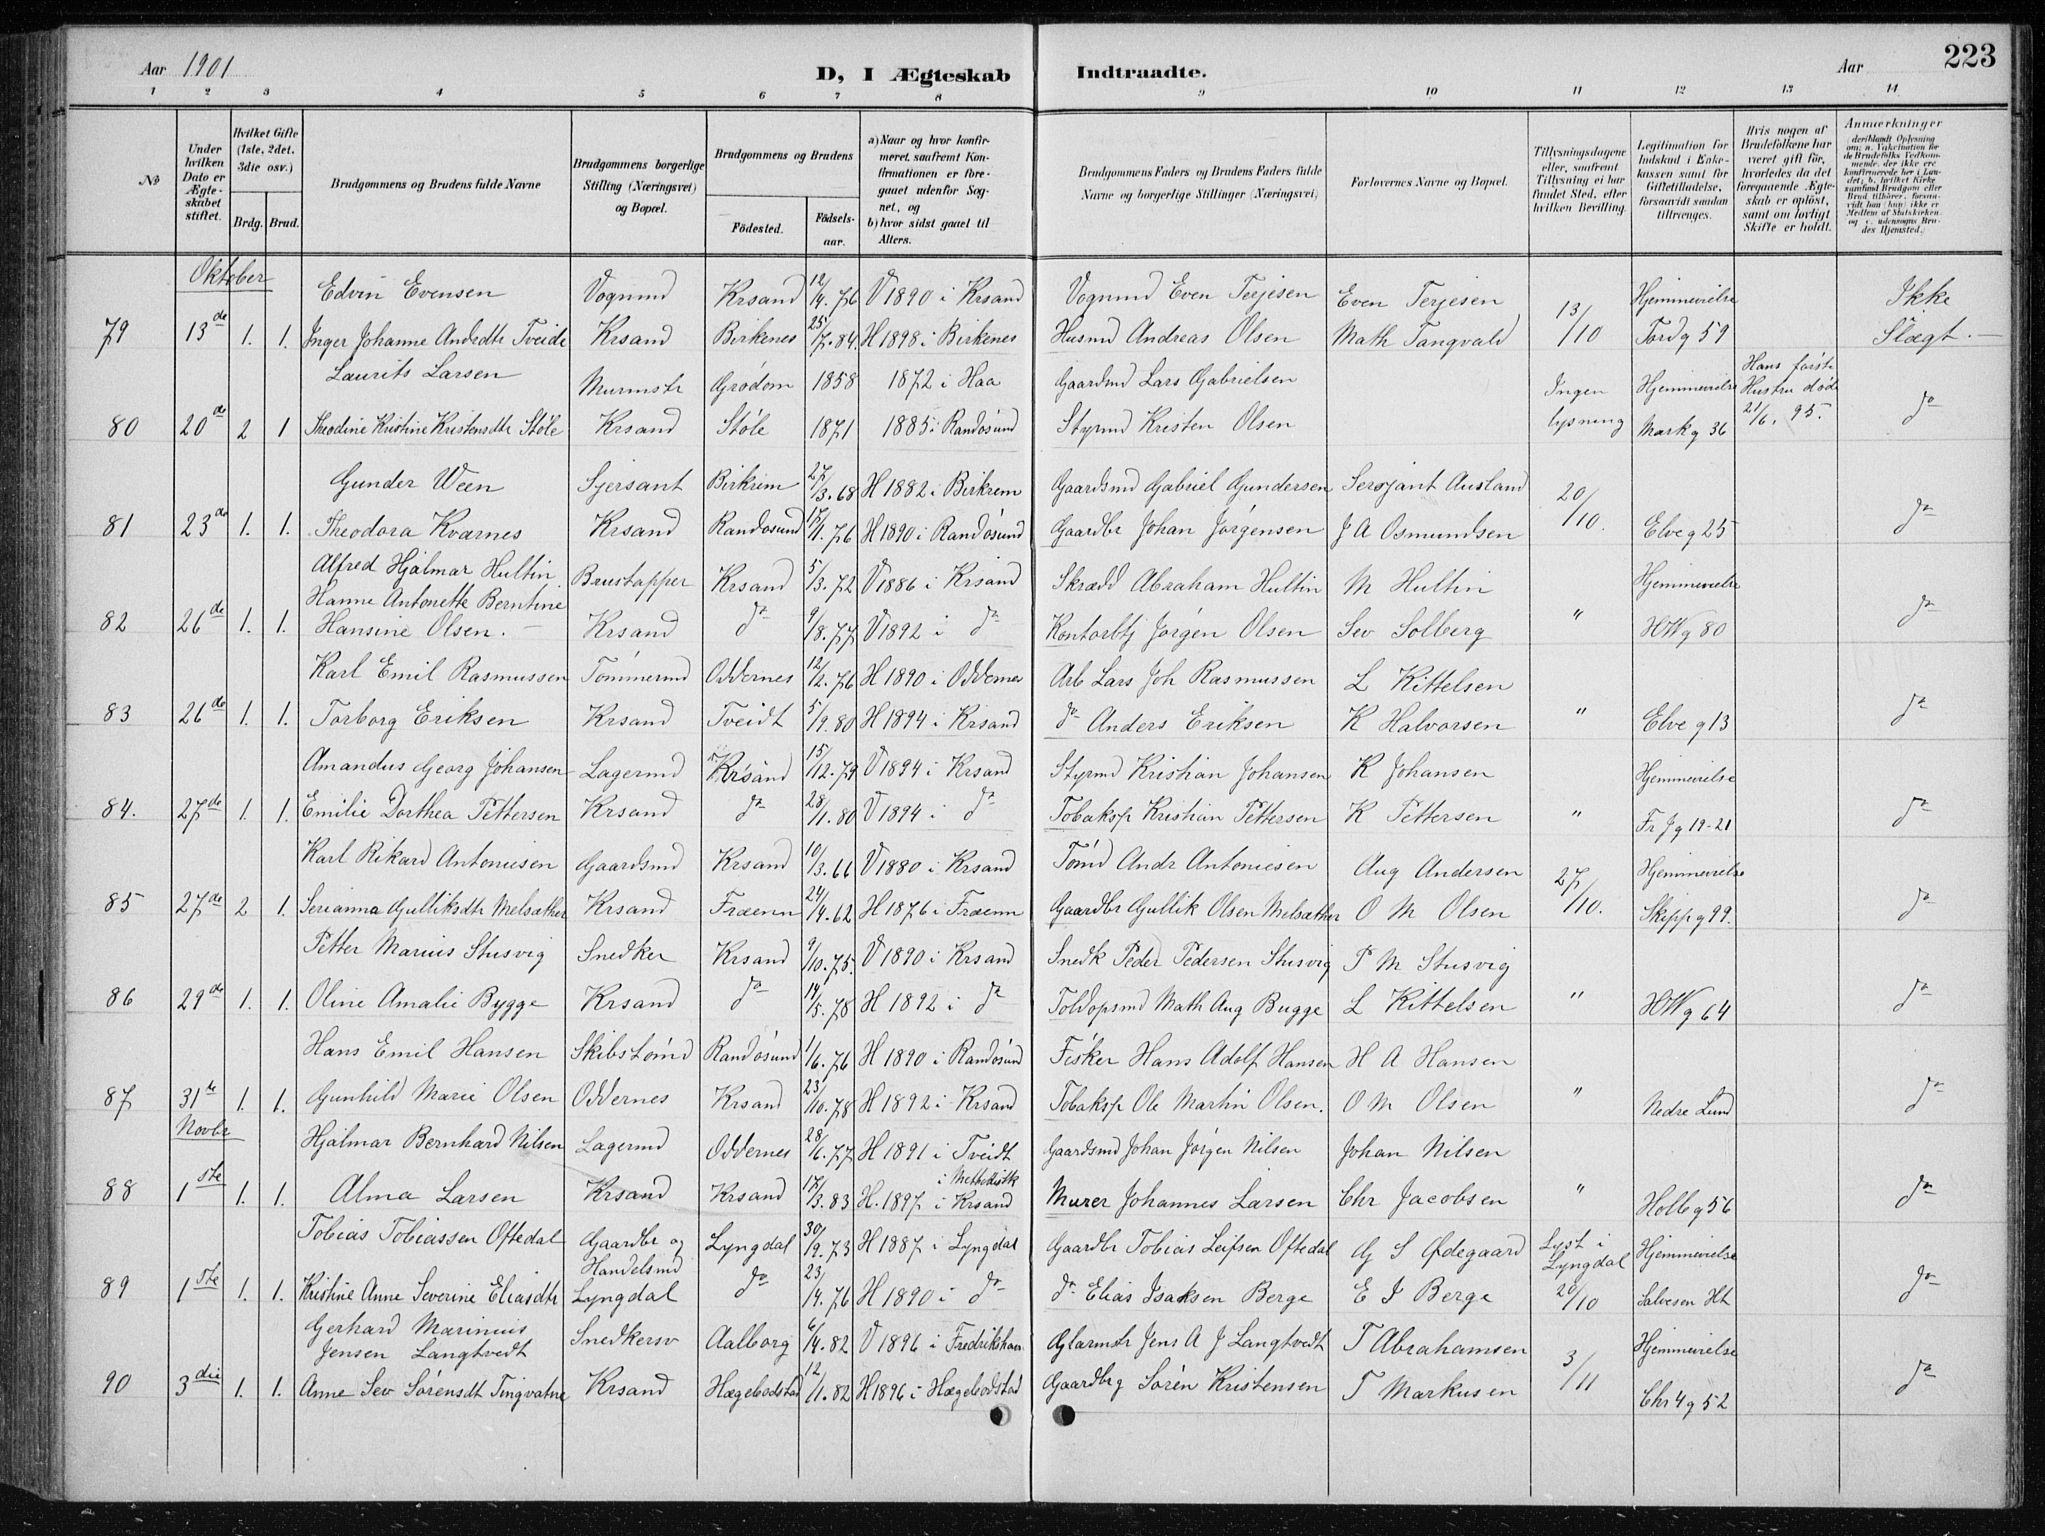 Aar 1901
D, I Ægteskab
Indtraadte.
Aar
223
1 2 3 4 5 6 7 8 9 10 11 12 13 14
No
Under hvilken Dato er Ægteskabet stiftet.
Hvilket Gifte (1ste, 2det, 3die osv.)
Brdg. Brud.
Brudgommens og Brudens fulde Navne
Brudgommens borgerlige Stilling (Næringsvei) og Bopæl.
Brudgommens og Brudens
Födested.
Födselsaar.
a) Naar og hvor konfirmeret, saafremt Konfirmationen er foregaaet udenfor Sognet, og
b) hvor sidst gaaet til Alters.
Brudgommens Faders og Brudens Faders fulde Navne og borgerlige Stillinger (Næringsvei)
Forlovernes Navne og Bopæl.
Tillysningsdagene eller, saafremt Tillysning ei har fundet Sted, efter hvilken Bevilling.
Legitimation for Indskud i Enkekassen samt for Giftetilladelse, forsaavidt saadan tiltrænges.
Hvis nogen af Brudefolkene har været gift för, hvorledes da det foregaaende Ægteskab er oplöst, samt om lovligt Skifte er holdt.
Anmærkninger
Oktober
Edvin Evensen Vognmd Krsand 12/4.76 V 1890 i Krsand Vognmd Even Terjesen Even Terjesen 13/10 Hjemmevielse Ikke
79 13de 1. 1. Inger Johanne Andsdtr Tveide Krsand Birkenes 25/7.84. H 1898 i Birkenes Husmd Andreas Olsen Math Tangvald Tordg 59 Slægt.
Laurits Larsen Murmstr Grödom 1858 1872 i Haa Gaardsmd Lars Gabrielsen Ingen lysning Hjemmevielse Hans første Hustru død 21/6. 95.
80 20de 2 1 Theodine Kristine Kristensdtr Støle Krsand Støle 1871 1885 i Randøsund Styrmd Kristen Olsen Markg 36 do
Gunder Ween Sjersant Birkrem 27/3.68 H 1882 i Birkrem Gaardsmd Gabriel Gundersen Sersjant Ausland 20/10.
81 23de 1. 1. Theodora Kvarnes Krsand Randøsund 17/1.76 H 1890 i Randøsund Gaardbr Johan Jørgensen J A Osmundsen Elveg 25 do
Alfred Hjalmar Hultin Brustapper Krsand 5/3.72 V 1886 i Krsand Skrædd Abraham Hultin M Hultin Hjemmevielse
Hanne Antonette Berntine
82 26de 1. 1. Hansine Olsen. Krsand do 9/8.77 V 1892 i do Kontorbtj Jørgen Olsen Sev Solberg " HWg 80 do
Karl Emil Rasmussen Tømmermd Oddernes 12/2.76 H 1890 i Oddernes Arb Lars Joh Rasmussen L Kittelsen
83 26de 1. 1. Torborg Eriksen Krsand Tveidt 5/9.80 H 1894 i Krsand do Anders Eriksen K Halvorsen " Elveg 13 do
Amandus Georg Johansen Lagermd Krsand 15/12.79 V 1894 i Krsand Styrmd Kristian Johansen K Johansen Hjemmevielse
84. 27de 1. 1. Emilie Dorthea Pettersen Krsand do 28/1.80 V 1894 i do Tobaksp Kristian Pettersen K Pettersen " Fr Jg 19-21 do
Karl Rikard Antoniesen Gaardsmd Krsand 10/3.66 V 1880 i Krsand Tømd Andr Antoniesen Aug Andersen 27/10. Hjemmevielse
85 27de 2 1. Serianna Gulliksdtr Melsæther Krsand Fræenn 24/4.62 H 1876 i Fræenn Gaardbr Gullik Olsen Melsæther O M Olsen Skippg 99. do
Petter Marius Stusvig Snedker Krsand 9/10.75. V 1890 i Krsand Snedk Peder Pedersen Stusvig P M Stusvig
86 29de 1. 1. Oline Amalie Bygge Krsand do 14/5.78 H 1892 i do Toldopsmd Math Aug Bugge L Kittelsen " HWg 64 do
Hans Emil Hansen Skibstømd Randøsund 1/6.76 H 1890 i Randøsund Fisker Hans Adolf Hansen H A Hansen
87 31te 1. 1. Gunhild Marie Olsen Oddernes Krsand 23/10.78 H 1892 i Krsand Tobaksp Ole Martin Olsen. O M Olsen " Nedre Lund do
Novbr
Hjalmar Bernhard Nilsen Lagermd Oddernes 28/6.77 H 1891 i Tveidt Gaardsmd Johan Jørgen Nilsen Johan Nilsen
88 1ste 1. 1. Alma Larsen Krsand Krsand 17/3.83 H. 1897 i Krsand Murer Johannes Larsen Chr Jacobsen " Holbg 56 do
Tobias Tobiassen Oftedal Gaardbr og Handelsmd Lyngdal 30/9.73 H 1887 i Lyngdal Gaardbr Tobias Leifsen Oftedal G S Ødegaard Lyst i Lyngdal Hjemmevielse
89 1ste 1. 1. Kristine Anne Severine Eliasdtr Lyngdal do 23/4.76 H 1890 i do do Elias Isaksen Berge E I Berge 20/10 Salvesen Ht do
Gerhard Marinius Jensen Langtvedt Snedkersv Aalborg 6/4.82 V 1896 i Fredrikshavn Glarmstr Jens A J Langtvedt T Abrahamsen 3/11 Hjemmevielse
90 3die 1. 1. Anne Sev Sørensdt Tingvatne Krsand Hægebodstad 12/1.82 H 1896 i Hægebodstad Gaardbrg Søren Kristensen T Markusen Chr 4g 52 do